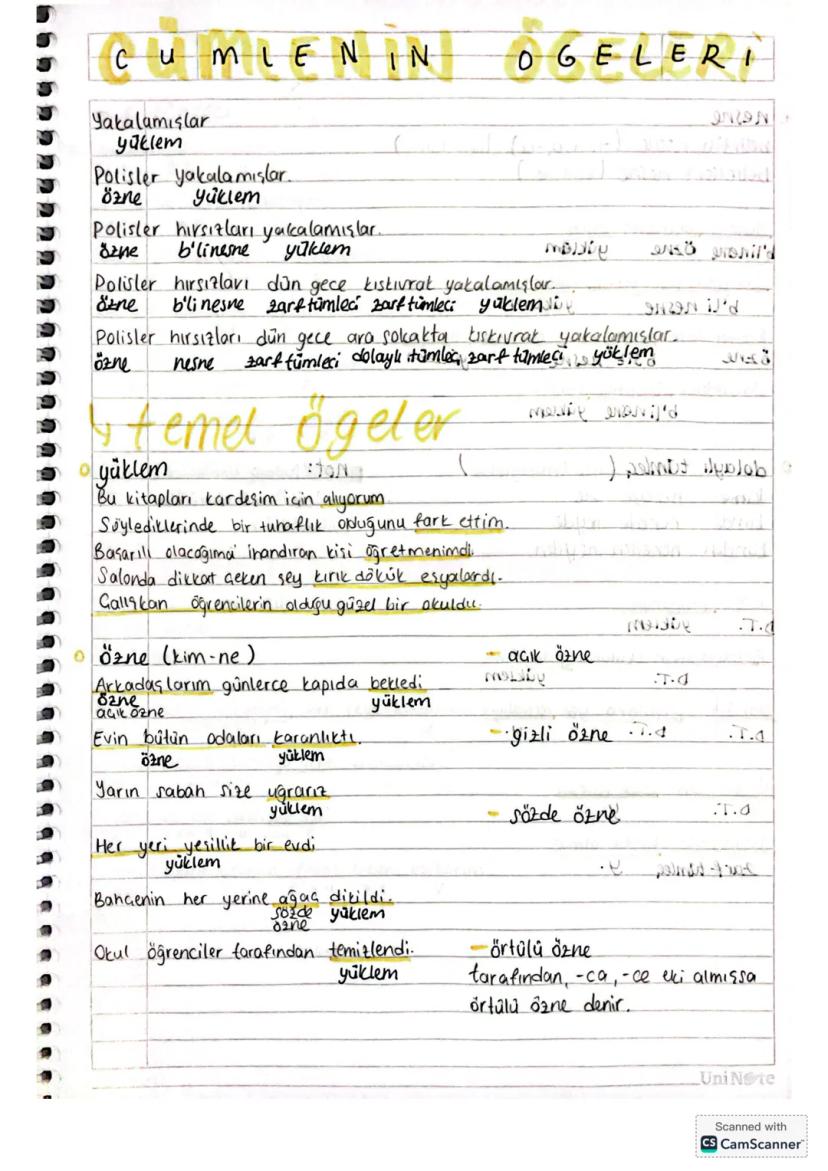 CÜMLENİN ÖGELERİ
Yakalamışlar
yüklem
Polisler yakalamışlar.
özne yüklem
Polisler hırsızları yakalamışlar.
özne b'li nesne yüklem
Polisler hırsızları dün gece kıskıvrak yakalamışlar.
özne b'li nesne zarf tümleci zarf tümleci yüklem
Polisler hırsızları dün gece ara sokakta kıskıvrak yakalamışlar.
özne nesne zarf tümleci dolaylı tümleç zarf tümleci yüklem
↳ temel ögeler
yüklem
Bu kitapları kardeşim için alıyorum
Söylediklerinde bir tuhaflık olduğunu fark ettim.
Başarılı olacağıma inandıran kişi öğretmenimdi.
Salonda dikkat çeken şey kırık dökük eşyalardı.
Çalışkan öğrencilerin olduğu güzel bir okuldu.
özne (kim-ne) - açık özne
Arkadaşlarım günlerce kapıda bekledi
özne yüklem
açık özne
Evin bütün odaları karanlıktı. - gizli özne
özne yüklem
Yarın sabah size uğrarız
yüklem - sözde özne
Her yeri yeşillik bir evdi
yüklem
Bahçenin her yerine ağaç dikildi.
sözde yüklem
özne
Okul öğrenciler tarafından temizlendi. - örtülü özne
yüklem tarafından, -ca, -ce eki almışsa
örtülü özne denir.
UniNote
Scanned with
CS CamScanner